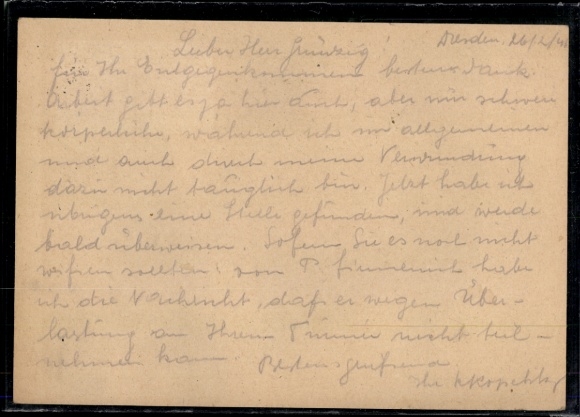 Dresden. 26/2/4
Lieber Herr Günzig!
für Ihr Entgegenkommen besten Dank.
Arbeit gibt es ja hier auch, aber nur schwere
körperliche, während ich im allgemeinen
und auch durch meine Verwundung
dazu nicht tauglich bin. Jetzt habe ich
übrigens eine Stelle gefunden, und werde
bald überweisen. Sofern Sie es noch nicht
wissen sollten: von P. habe
ich die Nachricht, daß er wegen Über-
lastung an Ihrem Turnier nicht teil-
nehmen kann. Bestens grüßend
Ihr